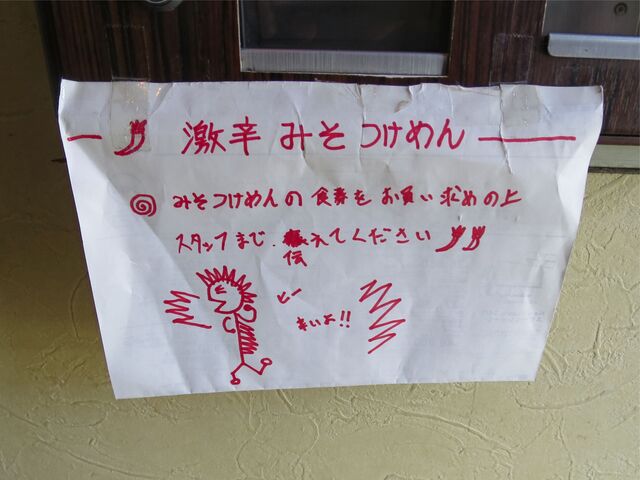 激辛 みそつけめん
みそつけめんの食券をお買い求めの上
スタッフまで 伝えてください